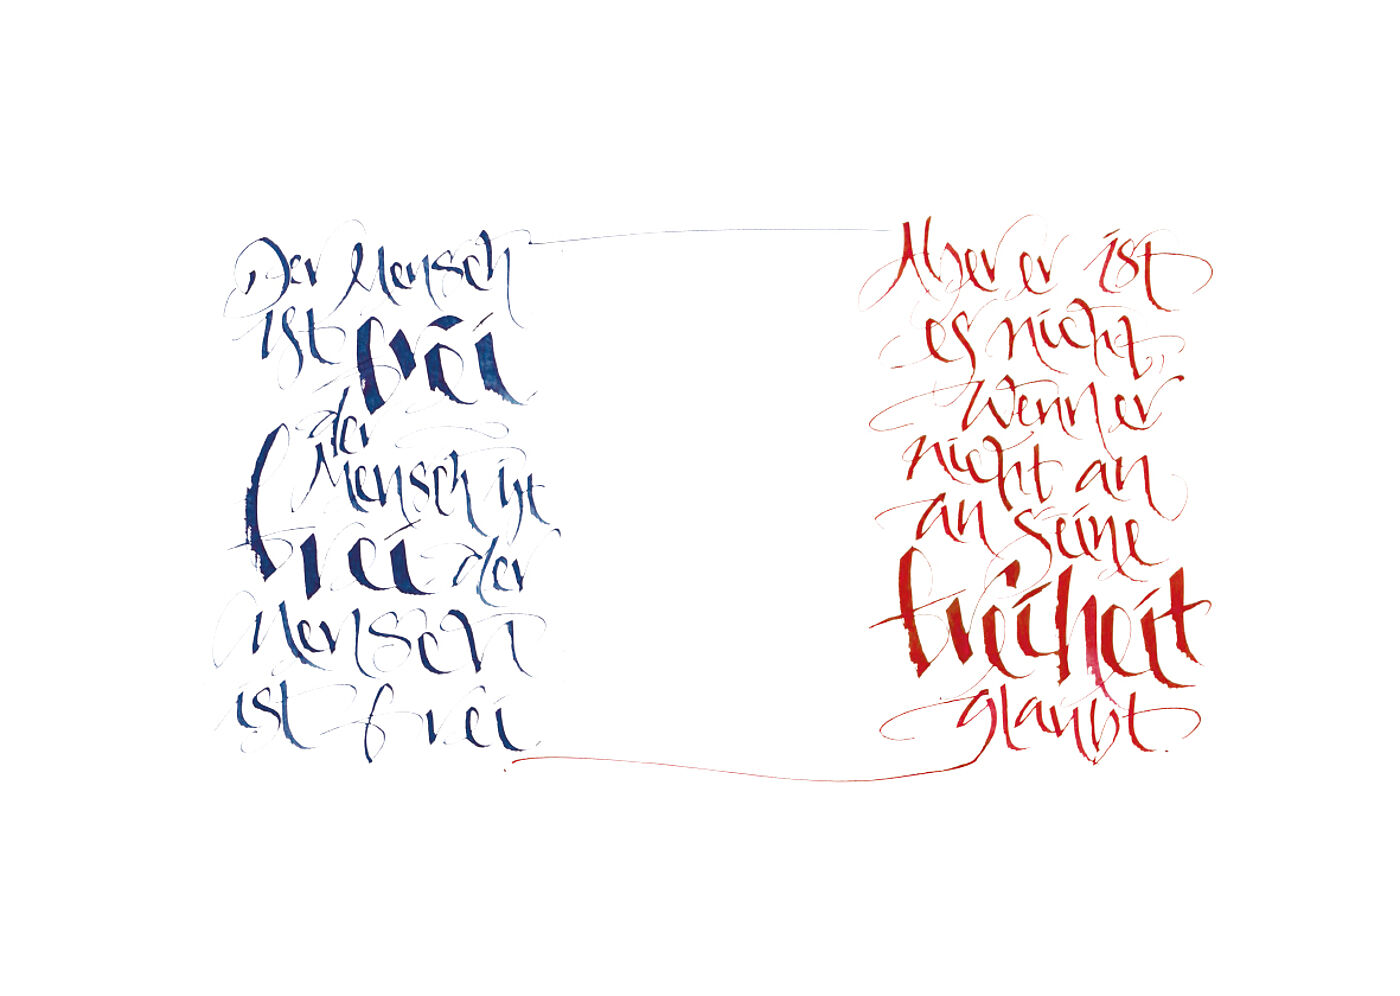 Der Mensch
ist frei
der
Mensch ist
frei der
Mensch
ist frei.
Aber er ist
es nicht,
wenn er
nicht an
an seine
freiheit
glaubt.